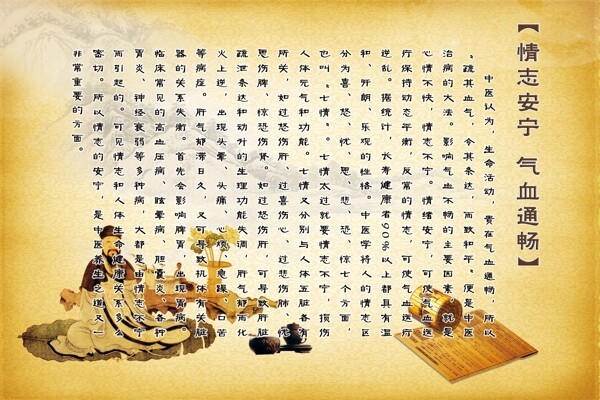 【情志安宁 气血通畅】
中医认为，生命活动，贵在气血通畅，所以
“疏其血气，令其条达，而致和平”便是中医
治病的大法。影响气血不畅的主要因素，就是
心情不快，情志不宁。情绪安宁，可使气血医
疗保持动态平衡，反常的情志，可使气血医疗
逆乱。据统计，长寿健康者90%以上都具有温
和、开朗、乐观的性格。中医学将人的情志区
分为喜、怒、忧、思、悲、恐、惊七个方面，
也叫“七情”。七情太过就要情志不宁，损伤
人体元气和功能。七情又分别与人体五脏各有
所关，如过怒伤肝、过喜伤心、过悲伤肺、忧
思伤脾、惊恐伤肾。如过怒伤肝，可导致肝脏
疏泄条达和动升的生理功能失调，肝气郁而化
火上逆，出现头晕、头痛、心烦、急躁、口苦
等病症。肝气郁滞日久，又可导致抗体有关脏
器的关系失衡。首先会影响脾胃，出现胃病。
临床常见的高血压病、眩晕病、胆囊炎、各种
胃炎、神经衰弱等多种病，大都是由情志不宁
而引起的。可见情志和人体生命健康关系多么
密切。所以情志的安宁，是中医养生之道又一
非常重要的方面。